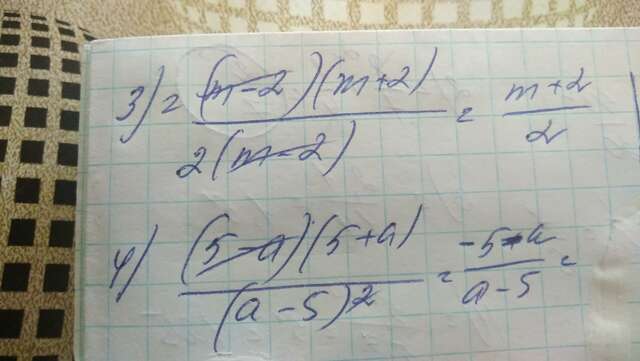 3) = (m-2)(m+2) / 2(m-2) = m+2 / 2
4) (5-a)(5+a) / (a-5)² = -5-a / a-5 =